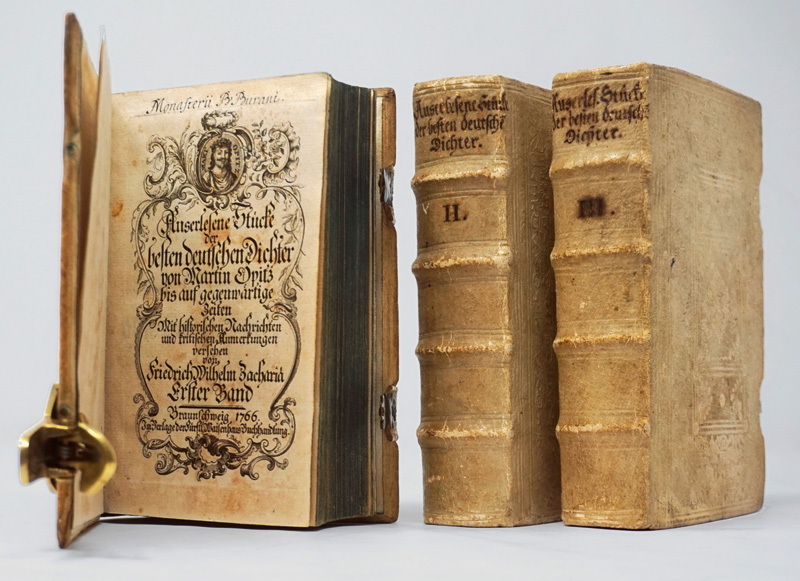 Monasterii B. Burani.
Auserlesene Stücke
der
besten deutschen Dichter
von Martin Opitz
bis auf gegenwärtige
Zeiten
Mit historischen Nachrichten
und kritischen Anmerkungen
versehen
von
Friedrich Wilhelm Zachariä
Erster Band
Braunschweig 1766.
Im Verlage der Fürstl. Waisenhaus Buchhandlung
Auserlesene Stück
der besten deutschē
Dichter.
II.
Auserles. Stück
der besten deutschē
Dichter.
III.